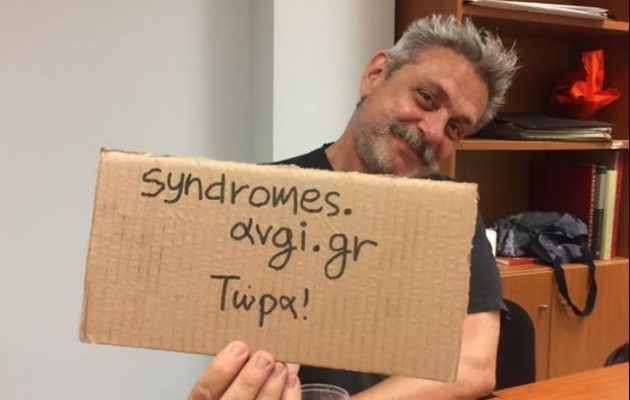 syndromes.
avgi.gr
Τώρα!